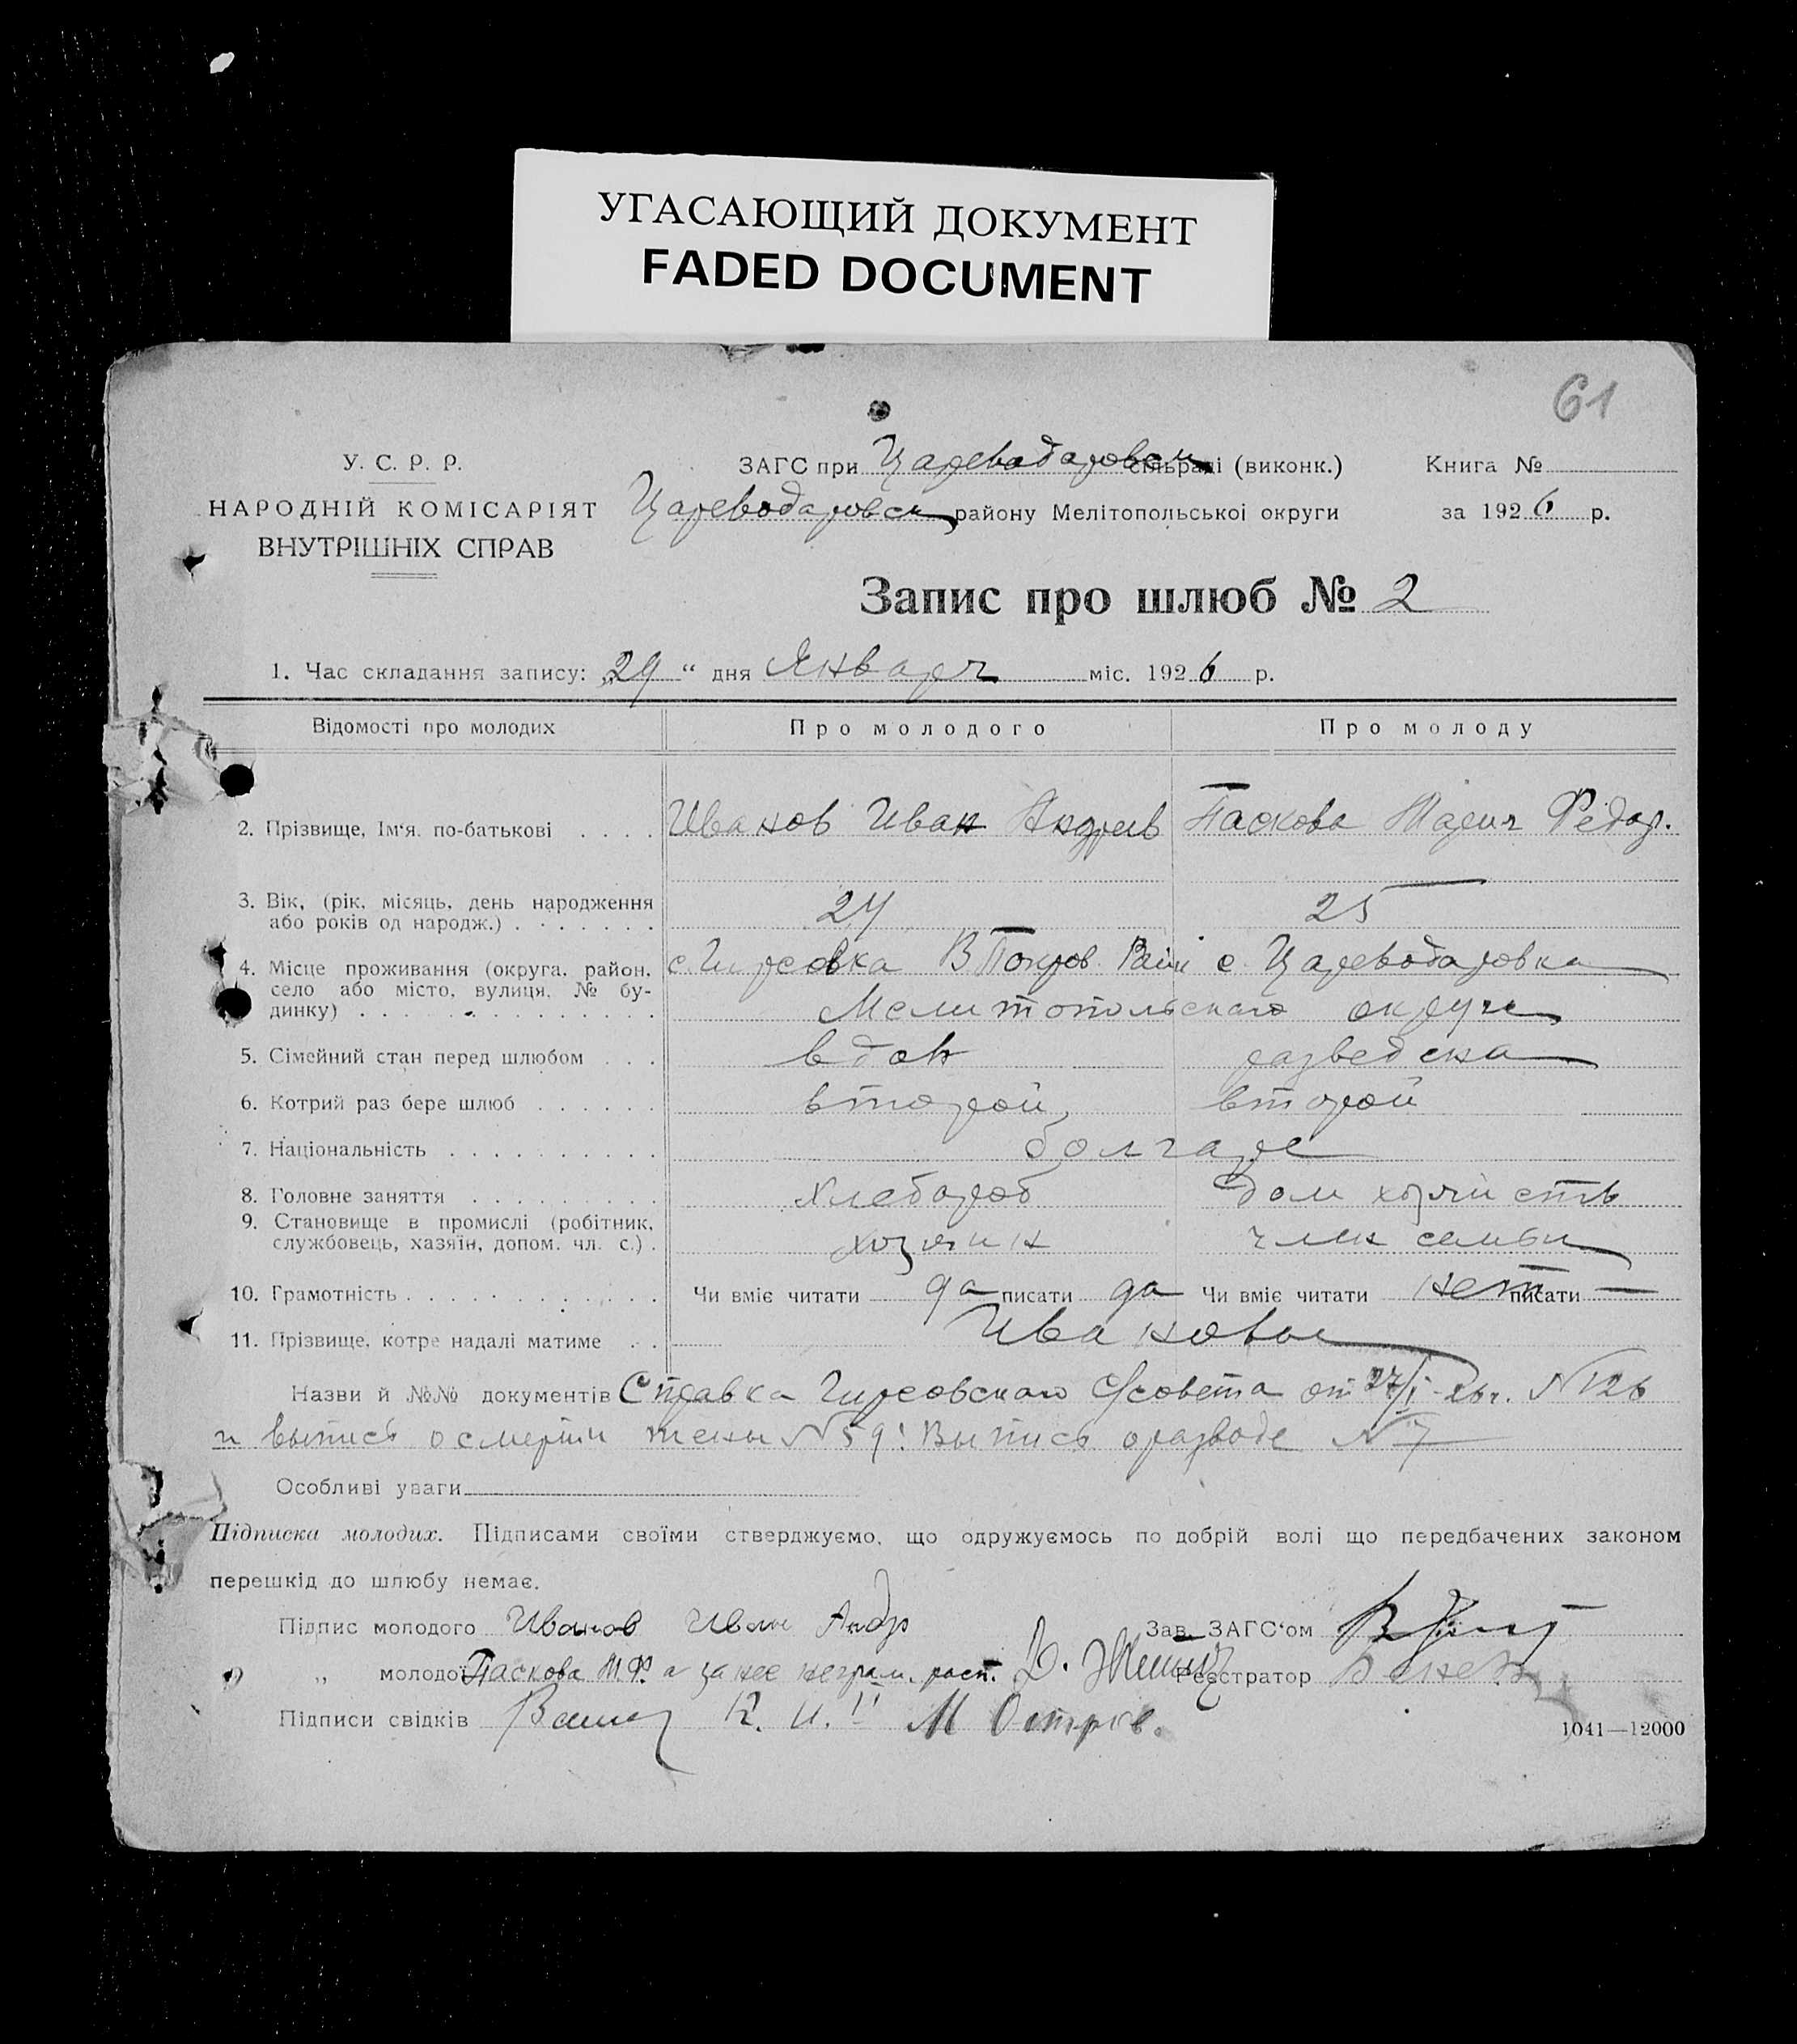 УГАСАЮЩИЙ ДОКУМЕНТ
FADED DOCUMENT
61
У. С. Р. Р.
НАРОДНІЙ КОМІСАРІЯТ
ВНУТРІШНІХ СПРАВ
ЗАГС при Цареводаровск сільраді (виконк.)
Цареводаровск району Мелітопольської округи
Книга №
за 1926 р.
Запис про шлюб № 2
1. Час складання запису: „29“ дня Января міс. 1926 р.
Відомості про молодих Про молодого Про молоду
2. Прізвище, Ім‘я, по-батькові . . . . Иванов Иван Андреев Паскова Мария Федор.
3. Вік, (рік, місяць, день народження
або років од народж.) . . . . . . . 24 25
4. Місце проживання (округа, район, с. Гирсовка В Покров. Рай с. Цареводаровка
село або місто, вулиця, № бу-
динку) . . . . . . . . . . . . . . Мелитопольского округа
5. Сімейний стан перед шлюбом . . . вдов разведена
6. Котрий раз бере шлюб . . . . . . второй второй
7. Національність . . . . . . . . . . болгаре
8. Головне заняття . . . . . . . . . хлебороб дом хозяйств
9. Становище в промислі (робітник,
службовець, хазяїн, допом. чл. с.) . хозяин член семьи
10. Грамотність . . . . . . . . . . . . Чи вміє читати да писати да Чи вміє читати нет писати —
11. Прізвище, котре надалі матиме . . Ивановы
Назви й №№ документів Справка Гирсовского с/совета от 27/I-26 г. N 126
и выпись о смерти жены N 59! Выпись о разводе N 7
Особливі уваги
Підписка молодих. Підписами своїми стверджуємо, що одружуємось по добрій волі що передбачених законом
перешкід до шлюбу немає.
Підпис молодого Иванов Иван Андр Зав. ЗАГС‘ом
„ молодої Паскова М.Ф. а за нее неграм. расп. Д. Реєстратор
Підписи свідків К. И. М
1041—12000